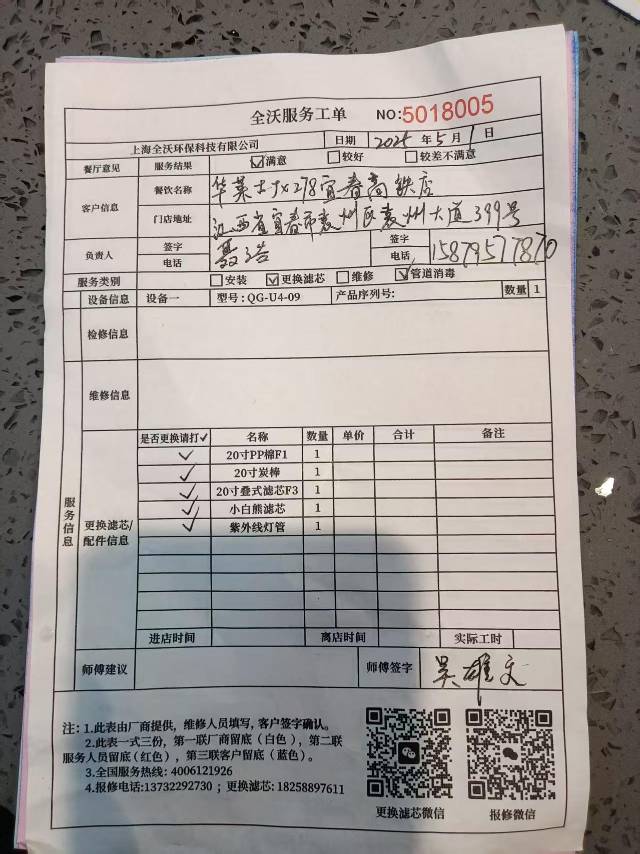 全沃服务工单 NO:5018005
上海全沃环保科技有限公司 日期 2025年5月1日
餐厅意见 服务结果 ☑满意 □较好 □较差不满意
客户信息 餐饮名称 华莱士jx278宜春高铁店
门店地址 江西省宜春市袁州区袁州大道399号
负责人 签字 聂浩 签字
电话 电话 15879577870
服务类别 □安装 ☑更换滤芯 □维修 ☑管道消毒
设备信息 设备一 型号: QG-U4-09 产品序列号: 数量 1
检修信息
维修信息
服务信息
更换滤芯/配件信息
是否更换请打✓ 名称 数量 单价 合计 备注
✓ 20寸PP棉F1 1
✓ 20寸炭棒 1
✓ 20寸叠式滤芯F3 1
✓ 小白熊滤芯 1
✓ 紫外线灯管 1
进店时间 离店时间 实际工时
师傅建议 师傅签字 吴雄文
注: 1.此表由厂商提供, 维修人员填写, 客户签字确认。
2.此表一式三份, 第一联厂商留底(白色), 第二联
服务人员留底(红色), 第三联客户留底(蓝色)。
3.全国服务热线: 4006121926
4.报修电话:13732292730 ; 更换滤芯: 18258897611
更换滤芯微信 报修微信